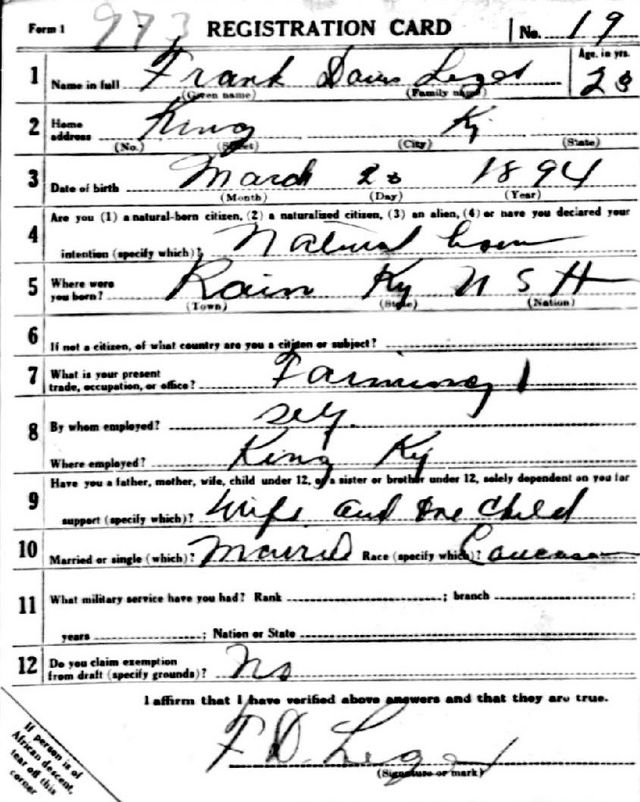 Form 1 973 REGISTRATION CARD No. 19
1 Name in full Frank Davis Age, in yrs. 23
(Given name) (Family name)
2 Home address King Ky
(No.) (Street) (City) (State)
3 Date of birth March 1894
(Month) (Day) (Year)
4 Are you (1) a natural-born citizen, (2) a naturalized citizen, (3) an alien, (4) or have you declared your
intention (specify which)? Natural born
5 Where were you born? Rain Ky U S A
(Town) (State) (Nation)
6 If not a citizen, of what country are you a citizen or subject?
7 What is your present trade, occupation, or office? Farming 1
8 By whom employed? self
Where employed? King Ky
9 Have you a father, mother, wife, child under 12, or a sister or brother under 12, solely dependent on you for
support (specify which)? Wife and One Child
10 Married or single (which)? Married Race (specify which)? Caucasian
11 What military service have you had? Rank ; branch ;
years ; Nation or State
12 Do you claim exemption from draft (specify grounds)? No
I affirm that I have verified above answers and that they are true.
F D.
(Signature or mark)
If person is of
African descent,
tear off this
corner